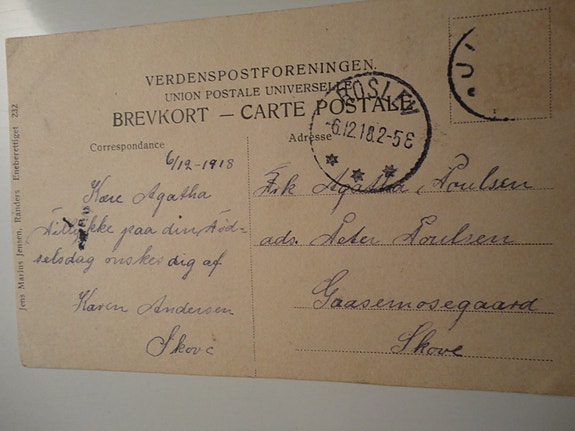 VERDENSPOSTFORENINGEN.
UNION POSTALE UNIVERSELLE
BREVKORT — CARTE POSTALE
Correspondance
Adresse
ROSLEV
6.12.18.2-5E
6/12-1918
Kære Agatha
Tillykke paa din Föd-
selsdag onskes dig af
Karen Andersen
Skove
Frk Agatha Poulsen
ads. Peter Poulsen
Gaasemosegaard
Skove
Jens Marius Jensen, Randers Eneberettiget 232